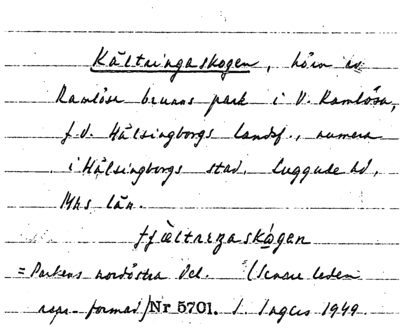 Kältringaskogen, hörn av
Ramlösa brunns park i V. Ramlösa,
f.d. Hälsingborgs landsf., numera
i Hälsingborgs stad, Luggude hd,
Mhs län.
skogen
= Parkens nordöstra del. (Senare leden
- formad) Nr 5701. 1949.